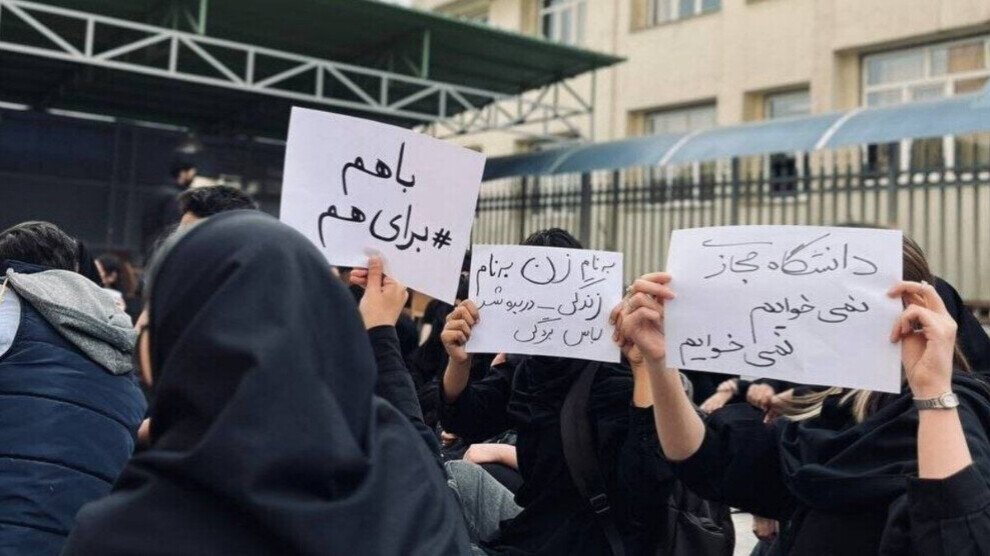 باهم
#برای هم
به نامِ زن به نام
زندگی _ دریده شد
لباس بردگی
دانشگاه مجازی
نمی خوایم
نمی خوایم